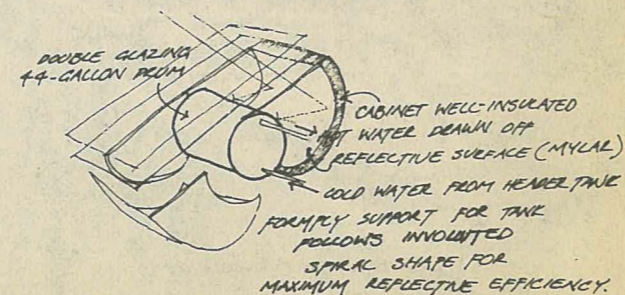 DOUBLE GLAZING
44-GALLON DRUM
CABINET WELL-INSULATED
HOT WATER DRAWN OFF
REFLECTIVE SURFACE (MYLAR)
COLD WATER FROM HEADER TANK
FORMPLY SUPPORT FOR TANK
FOLLOWS INVOLUTED
SPIRAL SHAPE FOR
MAXIMUM REFLECTIVE EFFICIENCY.